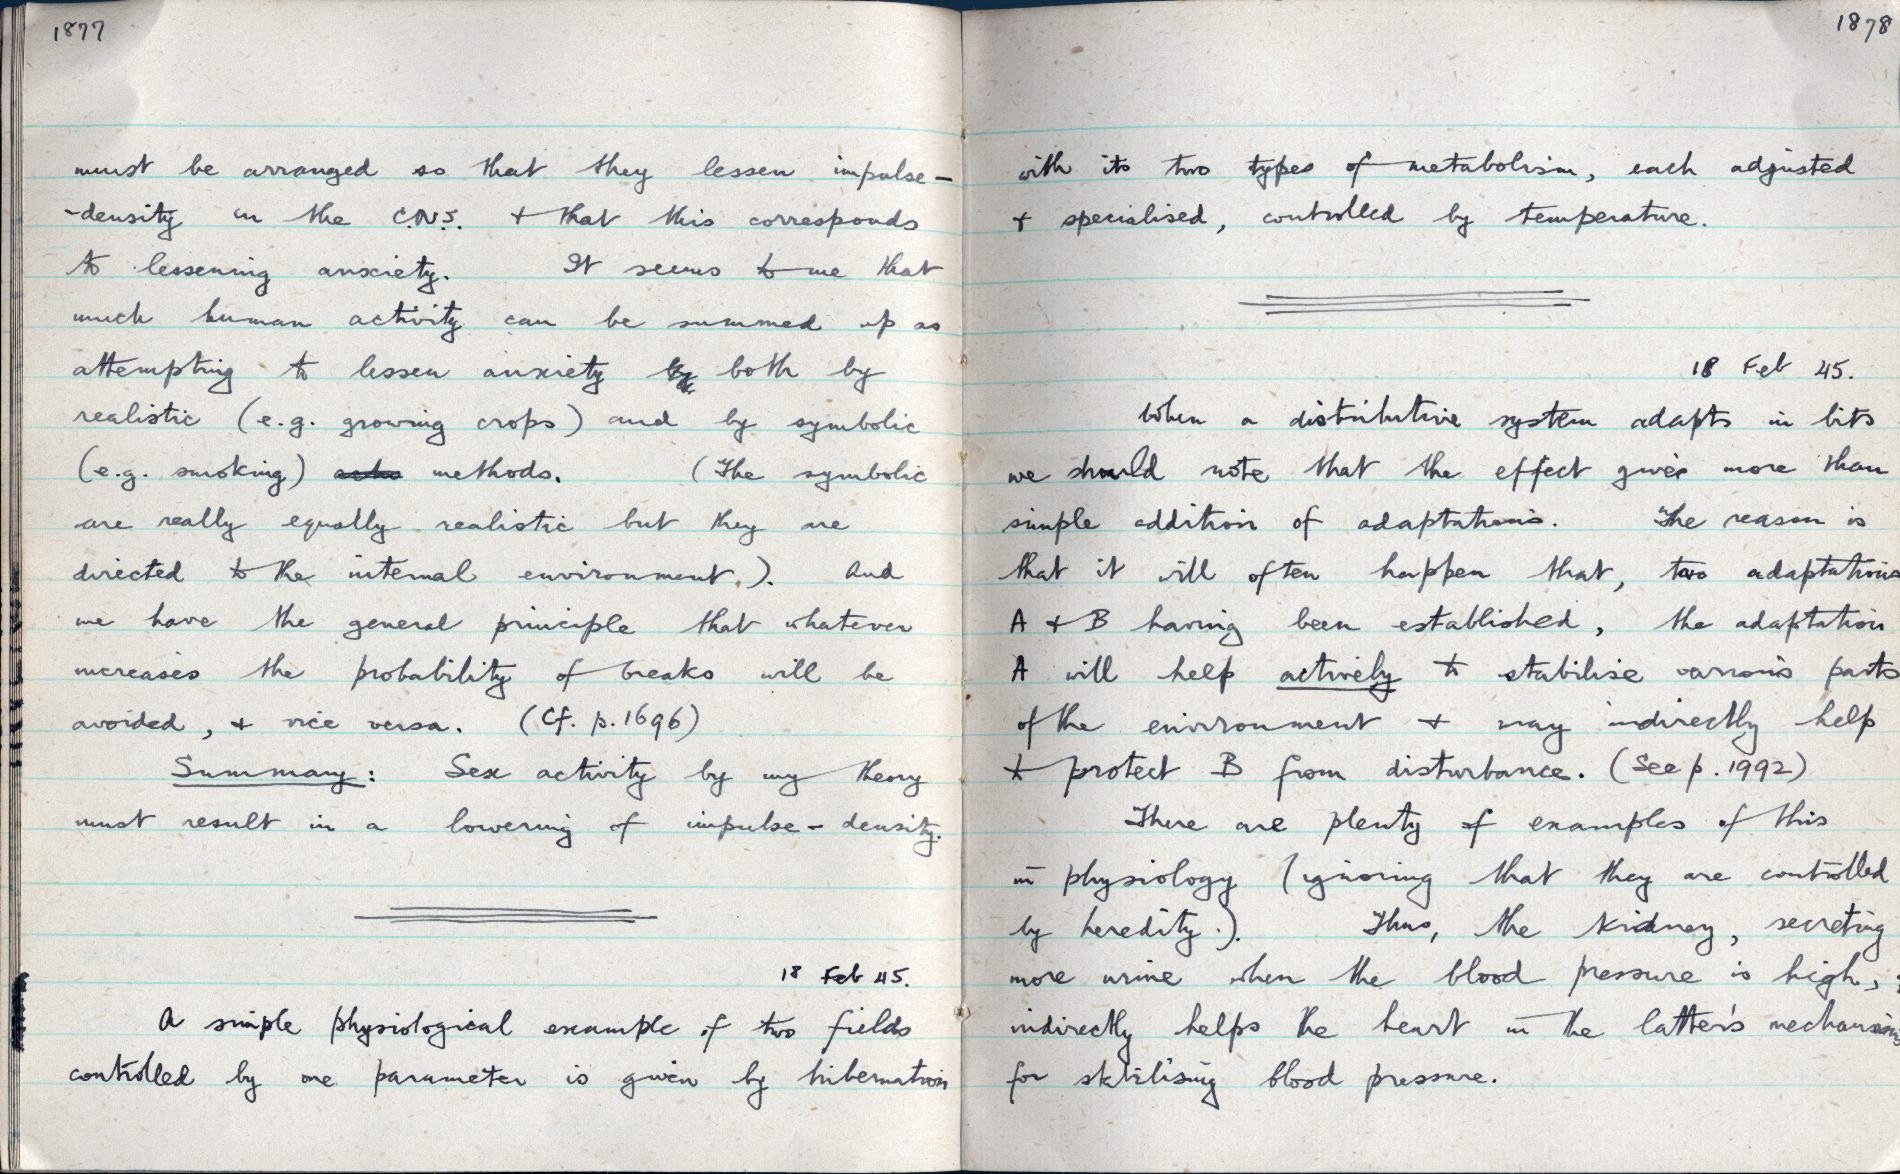 1877
must be arranged so that they lessen impulse-
-density in the C.N.S. + that this corresponds
to lessening anxiety. It seems to me that
much human activity can be summed up as
attempting to lessen anxiety by both by
realistic (e.g. growing crops) and by symbolic
(e.g. smoking) acts methods. (The symbolic
are really equally realistic but they are
directed to the internal environment.). And
we have the general principle that whatever
increases the probability of breaks will be
avoided, + vice versa. (Cf. p. 1696)
Summary: Sex activity by my theory
must result in a lowering of impulse-density.
18 Feb 45.
A simple physiological example of two fields
controlled by one parameter is given by hibernation
1878
with its two types of metabolism, each adjusted
+ specialised, controlled by temperature.
18 Feb 45.
When a distributive system adapts in bits
we should note that the effect gives more than
simple addition of adaptations. The reason is
that it will often happen that, two adaptations
A + B having been established, the adaptation
A will help actively to stabilise various parts
of the environment + may indirectly help
to protect B from disturbance. (See p. 1992)
There are plenty of examples of this
in physiology (ignoring that they are controlled
by heredity.). Thus, the kidney, secreting
more urine when the blood pressure is high,
indirectly helps the heart in the latter's mechanisms
for stabilising blood pressure.